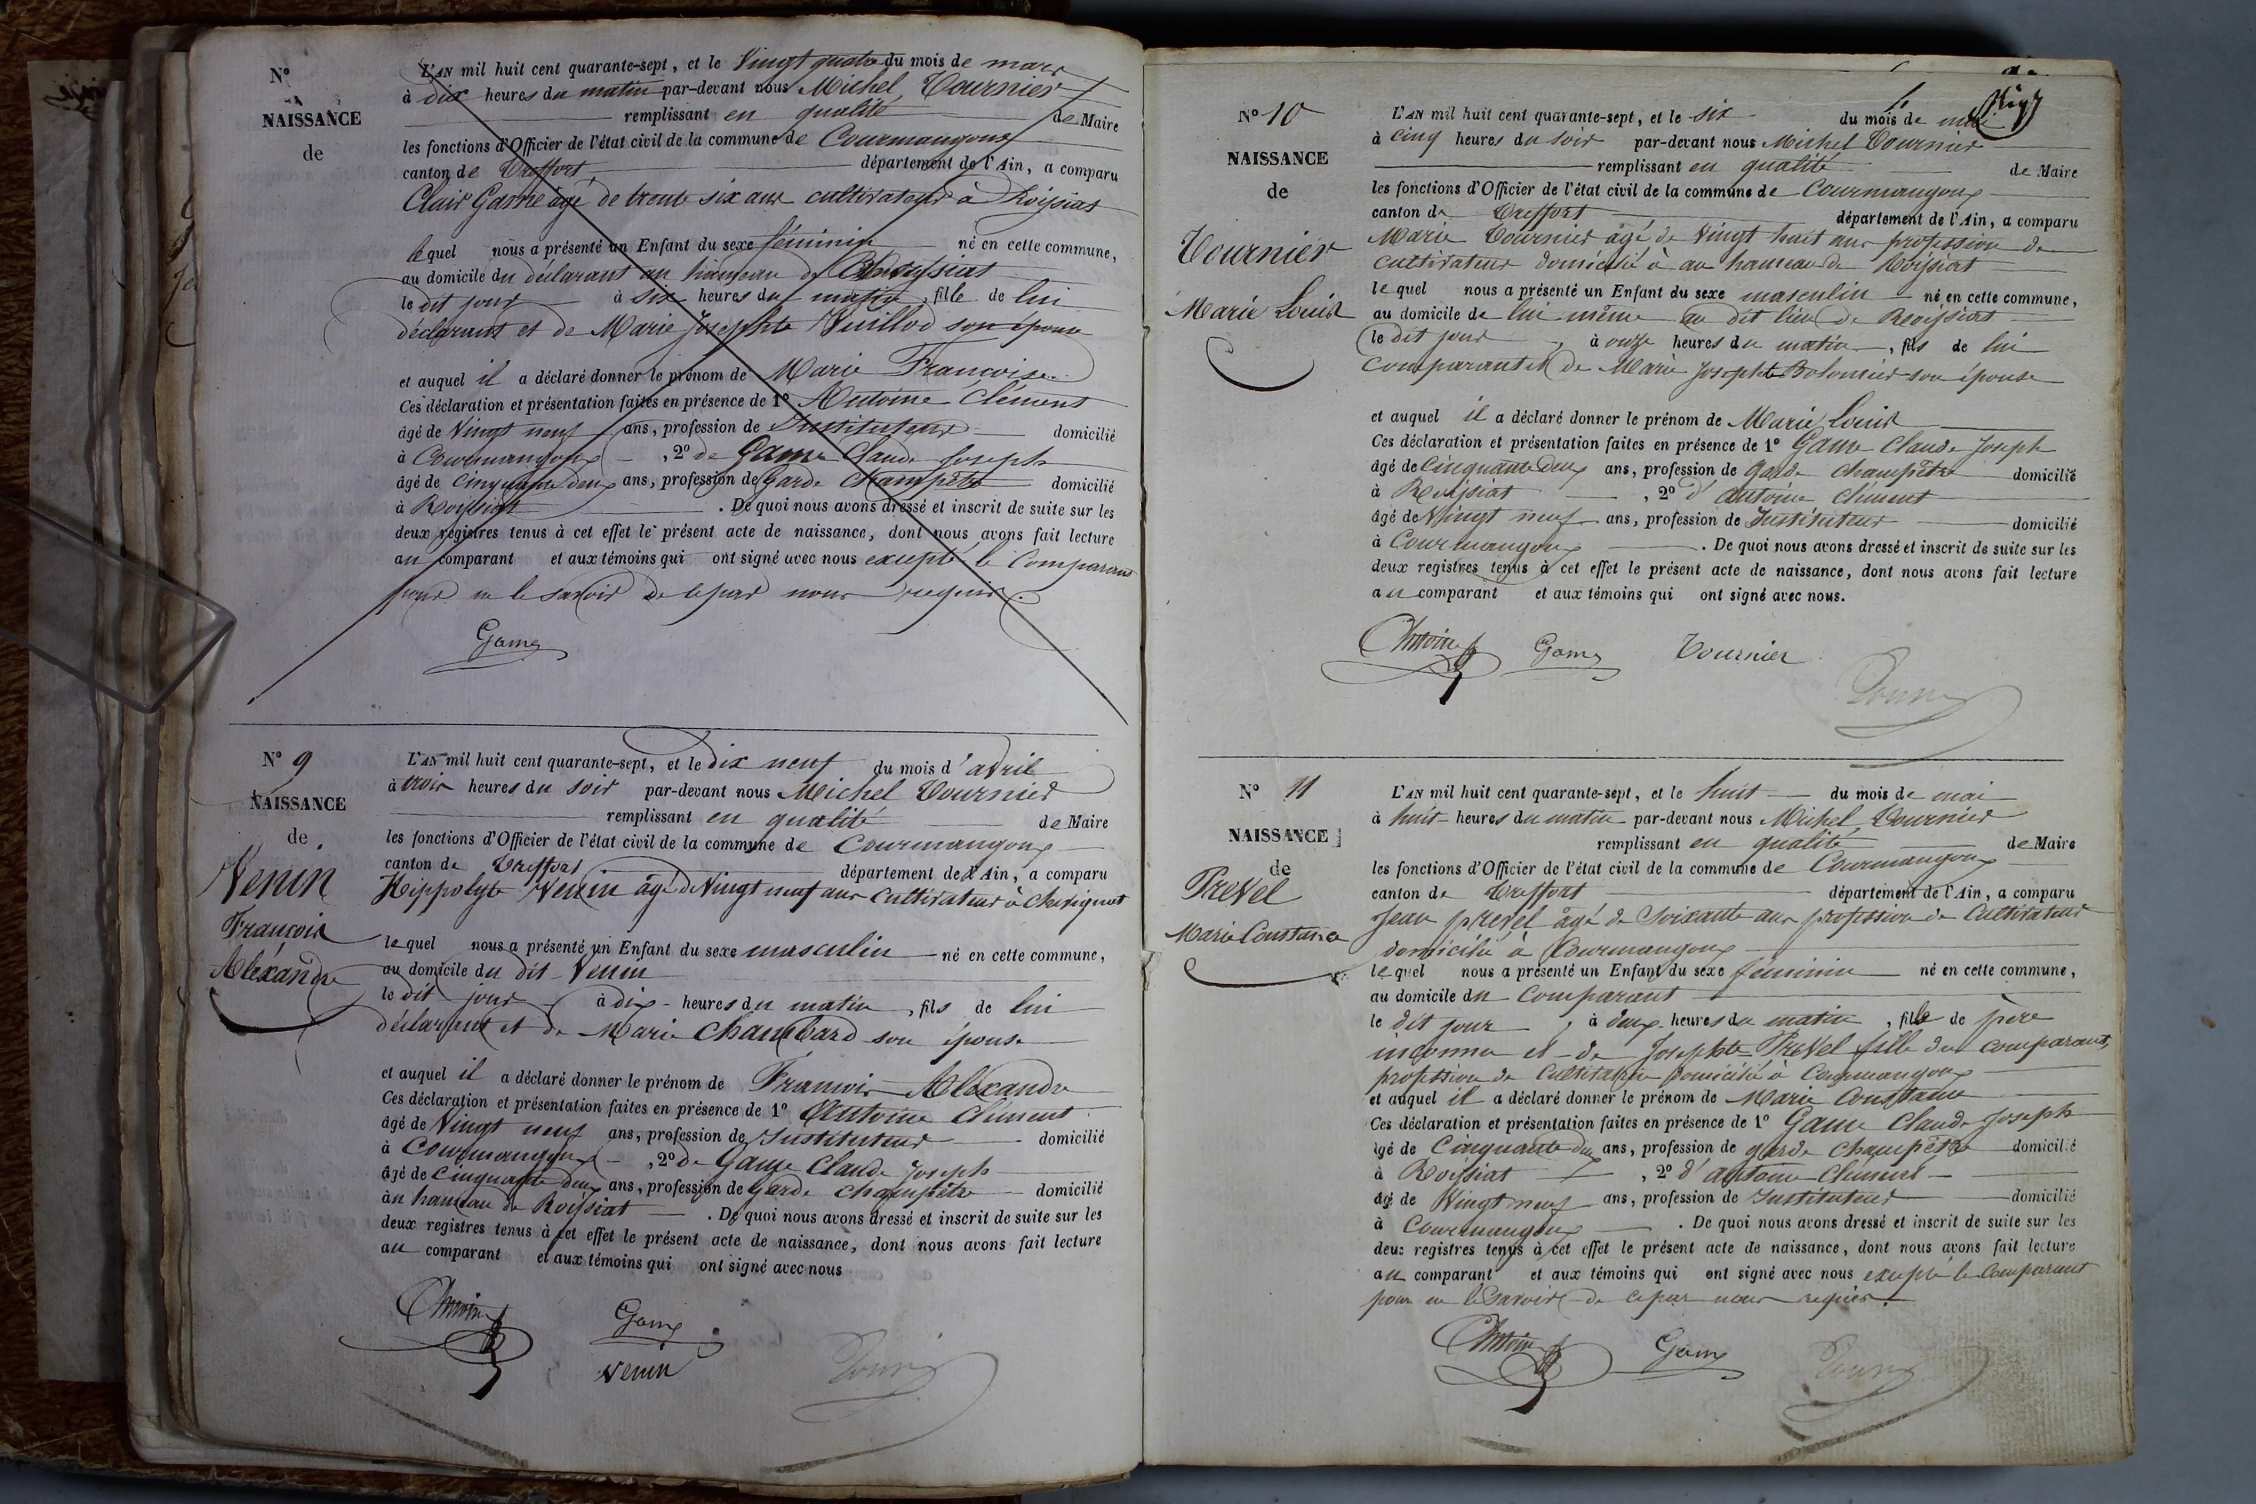 N°
NAISSANCE
de
L'AN mil huit cent quarante-sept, et le Vingt quatre du mois de mars
à dix heures du matin par-devant nous Michel Tournier
remplissant en qualité de Maire
les fonctions d'Officier de l'état civil de la commune de Courmangoux
canton de Treffort département de l'Ain, a comparu
Clair Game âgé de trente six ans cultivateur à Roissiat
lequel nous a présenté un Enfant du sexe féminin né en cette commune,
au domicile du déclarant au hameau de Roissiat
le dit jour à six heures du matin, fille de lui
déclarant et de Marie Josephte Vuillod son épouse
et auquel il a déclaré donner le prénom de Marie Françoise
Ces déclaration et présentation faites en présence de 1° Antoine Clément
âgé de Vingt neuf ans, profession de Instituteur domicilié
à Courmangoux, 2° de Game Claude Joseph
âgé de cinquante deux ans, profession de Garde Champêtre domicilié
à Roissiat. De quoi nous avons dressé et inscrit de suite sur les
deux registres tenus à cet effet le présent acte de naissance, dont nous avons fait lecture
au comparant et aux témoins qui ont signé avec nous excepté le Comparant
pour ne le savoir de ce par nous requis.
Game
N° 9
NAISSANCE
de
Venin
François
Aléxandre
L'AN mil huit cent quarante-sept, et le dix neuf du mois d'avril
à trois heures du soir par-devant nous Michel Tournier
remplissant en qualité de Maire
les fonctions d'Officier de l'état civil de la commune de Courmangoux
canton de Treffort département de l'Ain, a comparu
Hippolyte Venin âgé de Vingt neuf ans cultivateur à Chevignat
lequel nous a présenté un Enfant du sexe masculin né en cette commune,
au domicile du dit Venin
le dit jour à dix heures du matin, fils de lui
déclarant et de Marie Chambard son épouse
et auquel il a déclaré donner le prénom de François Aléxandre
Ces déclaration et présentation faites en présence de 1° Antoine Clément
âgé de Vingt neuf ans, profession de Instituteur domicilié
à Courmangoux, 2° de Game Claude Joseph
âgé de cinquante deux ans, profession de garde champêtre domicilié
au hameau de Roissiat. De quoi nous avons dressé et inscrit de suite sur les
deux registres tenus à cet effet le présent acte de naissance, dont nous avons fait lecture
au comparant et aux témoins qui ont signé avec nous
Antoine Game
Venin
N° 10
NAISSANCE
de
Tournier
Marie Louis
L'AN mil huit cent quarante-sept, et le six du mois de mai
à cinq heures du soir par-devant nous Michel Tournier
remplissant en qualité de Maire
les fonctions d'Officier de l'état civil de la commune de Courmangoux
canton de Treffort département de l'Ain, a comparu
Marie Tournier âgé de Vingt huit ans profession de
cultivateur domicilié à au hameau de Roissiat
lequel nous a présenté un Enfant du sexe masculin né en cette commune,
au domicile de lui même au dit lieu de Roissiat
le dit jour, à onze heures du matin, fils de lui
Comparant et de Marie Josephte Bolomier son épouse
et auquel il a déclaré donner le prénom de Marie Louis
Ces déclaration et présentation faites en présence de 1° Game Claude Joseph
âgé de Cinquante deux ans, profession de garde champêtre domicilié
à Roissiat, 2° d'Antoine Clément
âgé de Vingt neuf ans, profession de Instituteur domicilié
à Courmangoux. De quoi nous avons dressé et inscrit de suite sur les
deux registres tenus à cet effet le présent acte de naissance, dont nous avons fait lecture
au comparant et aux témoins qui ont signé avec nous.
Antoine Game Tournier
N° 11
NAISSANCE
de
Prevel
Marie Constance
L'AN mil huit cent quarante-sept, et le huit du mois de mai
à huit heures du matin par-devant nous Michel Tournier
remplissant en qualité de Maire
les fonctions d'Officier de l'état civil de la commune de Courmangoux
canton de Treffort département de l'Ain, a comparu
Jean prevel âgé de Soixante ans profession de Cultivateur
domicilié à Courmangoux
lequel nous a présenté un Enfant du sexe féminin né en cette commune,
au domicile du Comparant
le dit jour, à deux heures du matin, fille de père
inconnu et de Josephte Prevel fille du comparant,
profession de Cultivatrice domicilié à Courmangoux
et auquel il a déclaré donner le prénom de Marie Constance
Ces déclaration et présentation faites en présence de 1° Game Claude Joseph
âgé de Cinquante deux ans, profession de garde champêtre domicilié
à Roissiat, 2° d'Antoine Clément
âgé de Vingt neuf ans, profession de Instituteur domicilié
à Courmangoux. De quoi nous avons dressé et inscrit de suite sur les
deux registres tenus à cet effet le présent acte de naissance, dont nous avons fait lecture
au comparant et aux témoins qui ont signé avec nous excepté le Comparant
pour ne le savoir de ce par nous requis.
Antoine Game